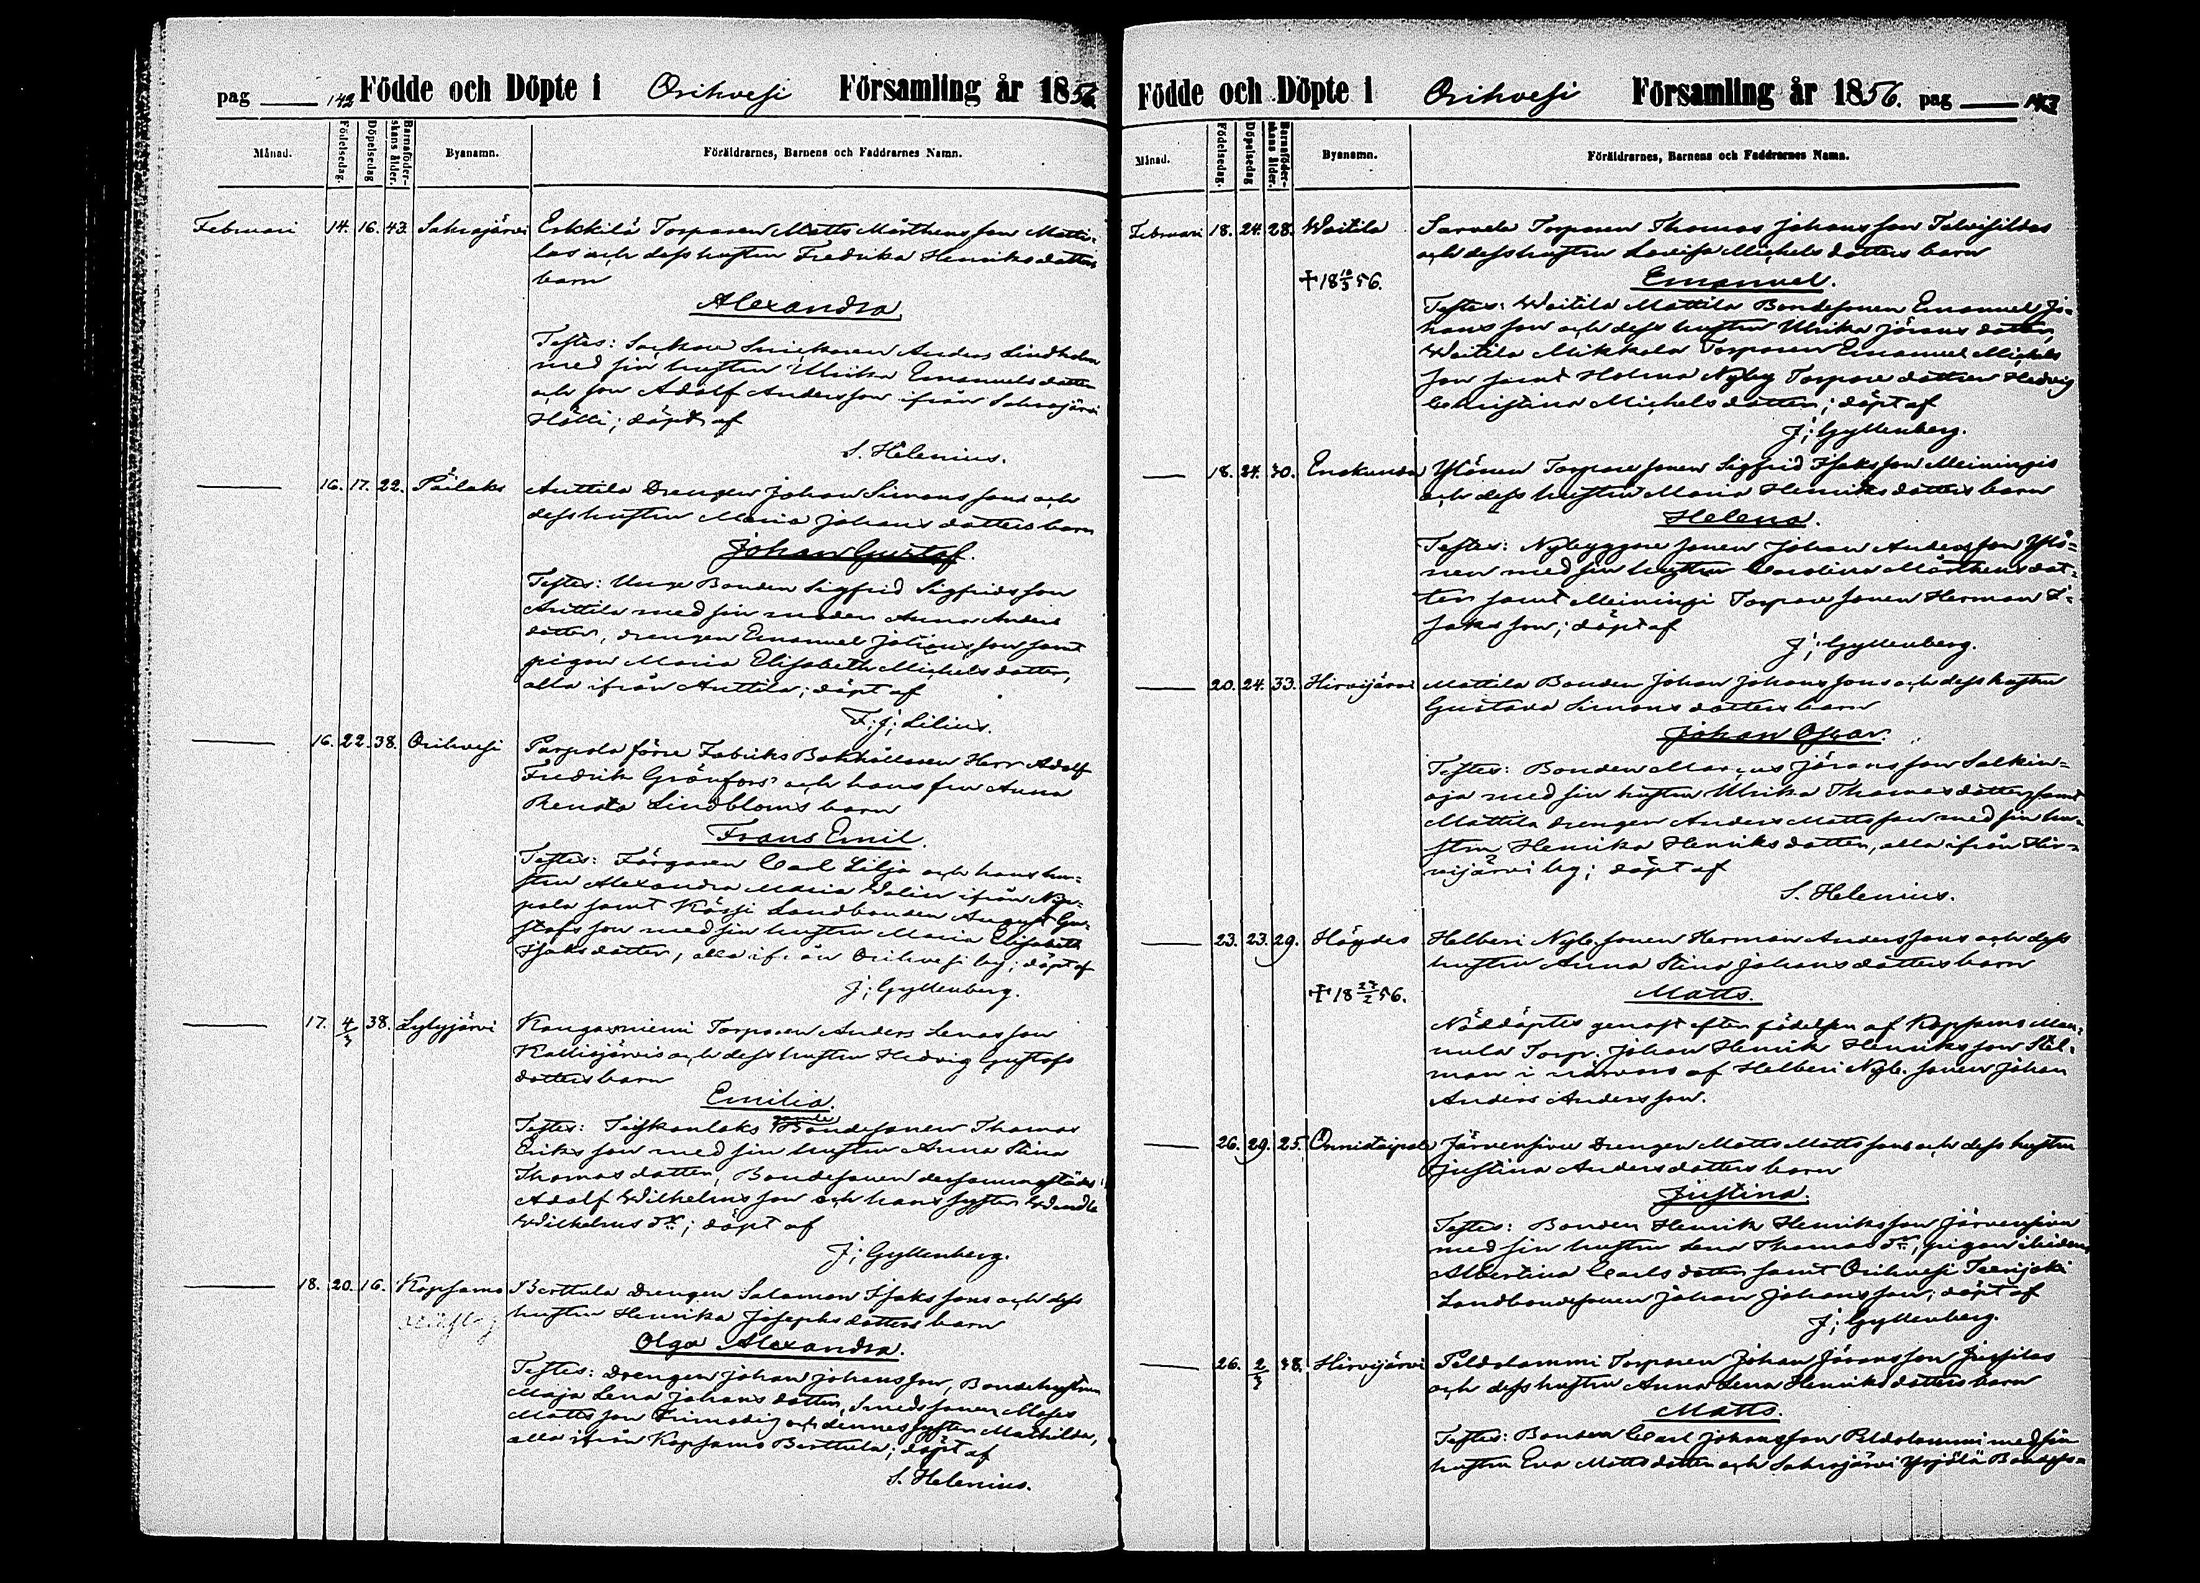 pag 142 Födde och Döpte i Orihvesi Församling år 1856.
Månad. Födelsedag. Döpelsedag Barnaföderskans ålder. Byanamn. Föräldrarnes, Barnens och Faddrarnes Namn.
Februari 14. 16. 43. Sahrajärvi Erkkilä Torparen Matts Mårthensson Matti-
las och dess hustru Fredrika Henriksdotters
barn
Alexandra.
Testes: Snickaren Anders Lindholm
med sin hustru Ulrika Emanuelsdotter
och son Adolf Andersson ifrån Sahrajärvi
Hötti; döpt af
S. Helenius.
16. 17. 22. Päilaks Anttila Drengen Johan Simonssons och
dess hustru Maria Johansdotters barn
Johan Gustaf.
Testes: Unge Bonden Sigfrid Sigfridsson
Anttila med sin moder Anna Anders
dotter, drengen Emanuel Johansson samt
pigan Maria Elisabeth Michelsdotter,
alla ifrån Anttila; döpt af
F: J: Lilius.
16. 22. 38. Orihvesi Parpola förre Fabriks Bokhållaren Herr Adolf
Fredrik Grönfors' och hans fru Anna
Renata Lindbloms barn
Frans Emil.
Testes: Färgaren Carl Lilja och hans hu-
stru Alexandra Maria Walin ifrån
pola samt Kässi Landbonden August Gu-
stafsson med sin hustru Maria Elisabeth
Isaksdotter, alla ifrån Orihvesi by; döpt af
J: Gyllenberg.
17. 4/3 38. Lylyjärvi Kangasniemi Torparen Anders Lenasson
Kallisjärvis och dess hustru Hedvig Gustafs
dotters barn
Emilia.
gamla
Testes: Bondesonen Thomas
Eriksson med sin hustru Anna Stina
Thomasdotter, Bondesonen dersammastädes
Adolf Wilhelmsson och hans syster Wendla
Wilhelms dr; döpt af
J: Gyllenberg.
18. 20. 16. Kopsamo Berttula Drengen Salomon Isakssons och dess
hustru Henrika Josephsdotters barn
Olga Alexandra.
Testes: Drengen Johan Johansson, Bondehustrun
Maja Lena Johansdotter, Smedssonen Moses
Mattsson Frimodig och dennes syster Mathilda,
alla ifrån Kopsamo Berttula; döpt af
S. Helenius.
Födde och Döpte i Orihvesi Församling år 1856. pag 143
Månad. Födelsedag. Döpelsedag Barnaföderskans ålder. Byanamn. Föräldrarnes, Barnens och Faddrarnes Namn.
Februari 18. 24. 28. Waitila Sarvela Torparen Thomas Johansson Talvisildas
och dess hustru Lovisa Michelsdotters barn
† 18 10/3 56. Emanuel.
Testes: Waitila Mattila Bondesonen Emanuel Jo-
hansson och dess hustru Ulrika Jöransdotter,
Waitila Mikkola Torparen Emanuel Michels
son samt Holma Nyby Torparedottren Hedvig
Christina Michelsdotter; döpt af
J: Gyllenberg.
18. 24. 30. Enokunda Ylönen Torparesonen Sigfrid Isaksson Meiningis
och dess hustru Maria Henriksdotters barn
Helena.
Testes: Nybyggaresonen Johan Andersson Ylö-
nen med sin hustru Carolina Mårthensdot-
ter samt Meiningi Torparesonen Herman I-
saksson; döpt af
J: Gyllenberg.
20. 24. 33. Hirvijärvi Mattila Bonden Johan Johanssons och dess hustru
Gustava Simonsdotters barn
Johan Oscar.
Testes: Bonden Marcus Jöransson Salkin-
oja med sin hustru Ulrika Thomasdotter samt
Mattila drengen Anders Mattsson med sin hu-
stru Henrika Henriksdotter, alla ifrån Hir-
vijärvi by; döpt af
S. Helenius.
23. 23. 29. Högdes Helberi Nyb. sonen Herman Anderssons och dess
hustru Anna Stina Johansdotters barn
† 18 23/2 56. Matts.
Nöddöptes genast efter födelsen af Kopsamo Man-
nula Torp. Johan Henrik Henriksson Stel-
man i närvaro af Helberi Nyb. sonen Johan
Anders Andersson.
26. 29. 25. Onnistaipale Järvensivu Drengen Matts Mattssons och dess hustru
Justina Andersdotters barn
Justina.
Testes: Bonden Henrik Henriksson Järvensivu
med sin hustru Lena Thomas dr, pigan ibidem
Albertina Carlsdotter samt Orihvesi Teerijoki
Landbondesonen Johan Johansson; döpt af
J: Gyllenberg.
26. 2/3 38. Hirvijärvi Peldolammi Torparen Johan Jöransson Jussilas
och dess hustru Anna Lena Henriksdotters barn
Matts.
Testes: Bonden Carl Johansson Peldolammi med sin
hustru Eva Mattsdotter och Sahrajärvi Yrjölä Bondeso-